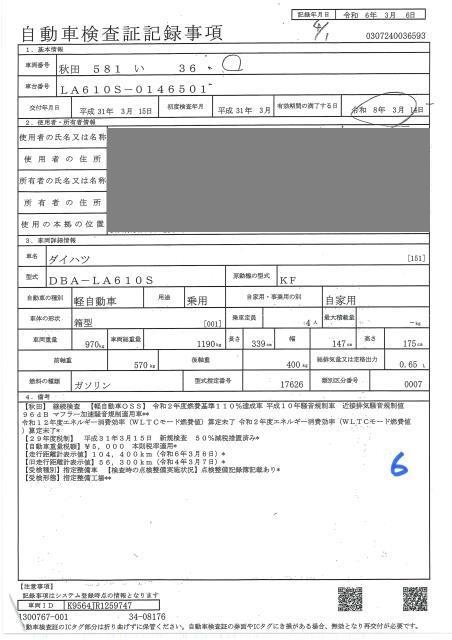 記録年月日 令和 6年 3月 6日
自動車検査証記録事項
4/1
0307240036593
1．基本情報
車両番号 秋田 581 い 36-
車台番号 LA610S-0146501
交付年月日 平成 31年 3月 15日 初度検査年月 平成 31年 3月 有効期間の満了する日 令和 8年 3月 14日
2．使用者・所有者情報
使用者の氏名又は名称
使用者の住所
所有者の氏名又は名称
所有者の住所
使用の本拠の位置
3．車両詳細情報
車名 ダイハツ [151]
型式 DBA-LA610S 原動機の型式 KF
自動車の種別 軽自動車 用途 乗用 自家用・事業用の別 自家用
車体の形状 箱型 [001] 乗車定員 4人 最大積載量 -kg
車両重量 970kg 車両総重量 1190kg 長さ 339cm 幅 147cm 高さ 175cm
前軸重 570kg 後軸重 400kg 総排気量又は定格出力 0.65 L
燃料の種類 ガソリン 型式指定番号 17626 類別区分番号 0007
4．備考
【秋田】 継続検査 【軽自動車OSS】 令和2年度燃費基準110％達成車 平成10年騒音規制車 近接排気騒音規制値
96dB マフラー加速騒音規制適用車**
令和12年度エネルギー消費効率（WLTCモード燃費値）算定未了 令和2年度エネルギー消費効率（WLTCモード燃費値
）算定未了*
【29年度税制】 平成31年3月15日 新規検査 50％減税措置済み*
【自動車重量税額】¥5,000 本則税率適用*
【走行距離計表示値】104,400km（令和6年3月6日）*
【旧走行距離計表示値】56,300km（令和4年3月7日）*
【受検種別】指定整備車 【検査時の点検整備実施状況】点検整備記録簿記載あり*
【受検形態】指定整備工場**
6
【注意事項】
記録事項はシステム登録時点の情報となります
車両ID K9564JR1259747
1300767-001 34-08176
自動車検査証のICタグ部分は折り曲げずに保管ください。自動車検査証の券面やICタグにき損がある場合、無効となり再交付が必要です。